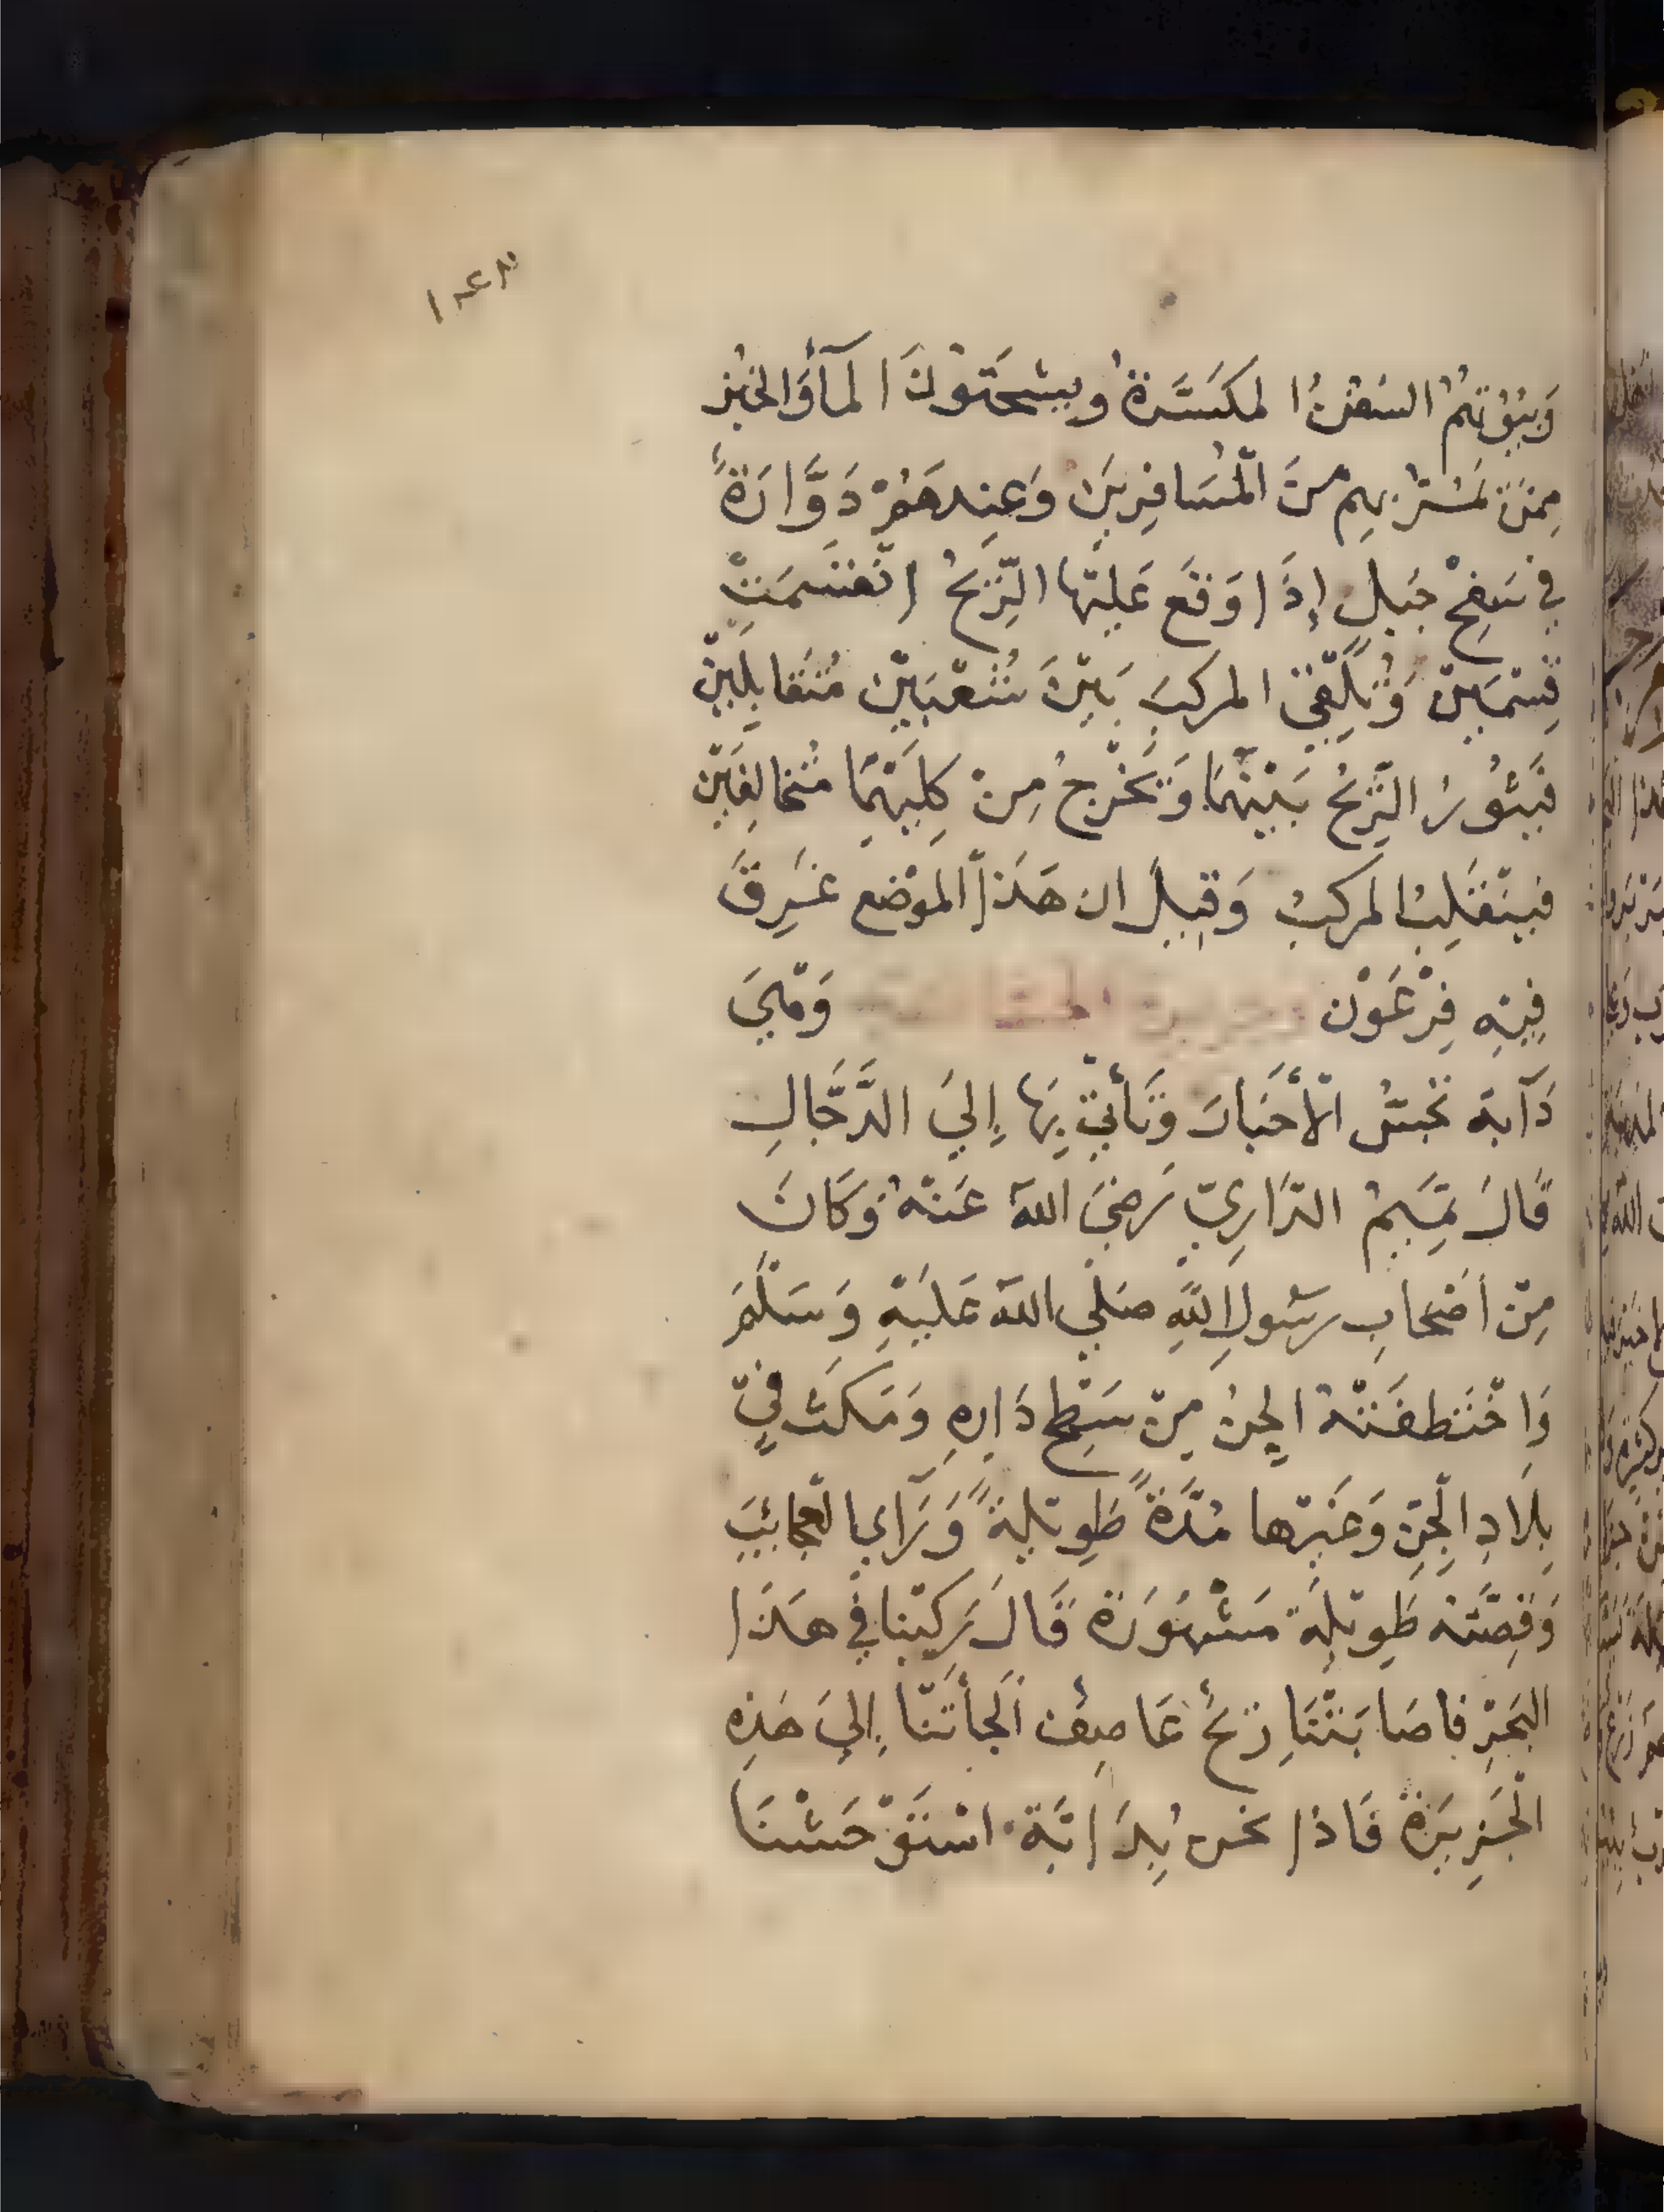 وَبُيُوتُهُمُ السُفُنُ المكَسَّرَةُ ويستمحونَ المآءَ والخبز
مِمَن يَمُرُّ بهم مِنَ الْمُسَافِرِينَ وَعِندهُمْ دَوَّارَةً
في سَفحْ جَبلٍ إِذَا وَقَعَ عَليْها الرِّيحُ انْقَسَمَتْ
قِسْمَيْن وَتُلْقِي المركبَ بَيْنَ شُعْبَتَيْن مُتَقَابِلَيْنْ
فَيَثُورُ الرِّيحُ بَيْنَهُمَا وَيَخْرجُ مِنْ كِلَيْهِمَا مُتخالِفَيْن
فيَنْقَلِبُ المركبُ وَقِيلَ ان هَذَا المَوْضع غَرِقَ
فِيْهِ فِرْعَوْن وَهْيَ
دَآبة تجسُّ الْأَخبارَ وَتَأْتِيْ بِهَا إِليَ الدَّجَّالِ
قَالَ تَمِيمُ الدَّارِيّ رَضِيَ اللهُ عَنْهُ وَكَانَ
مِنْ أَصْحابِ رسُولِ اللهِ صَلي اللهُ عَلَيْهِ وَسَلَّمَ
وَاخْتَطفَتْهُ الجِنُ مِنْ سَطحِ دَارِهِ وَمَكَثَ فِيْ
بِلَادِ الْجِنِ وَغَيْرها مُدَّةً طَوِيْلةً وَرَأَى العجائبَ
وَقِصَّتهُ طَوِيْلَة مَشْهُوَرة قَالَ رَكبْنا في هَذَا
البَحْرِ فاصَابَتْنَا رِيحٌ عَاصِفٌ أَلجأَتْنَا إِليَ هَذِهِ
الْجَزِيرَةِ فَاذا نحن بِدَابَّة اسْتَوْحَشْنَا